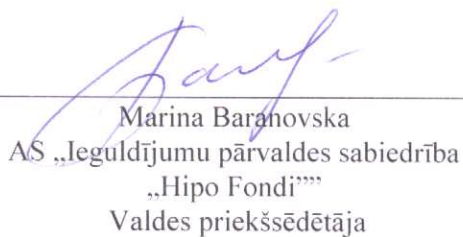 Marina Baranovska
AS „Ieguldījumu pārvaldes sabiedrība
„Hipo Fondi”"
Valdes priekšsēdētāja